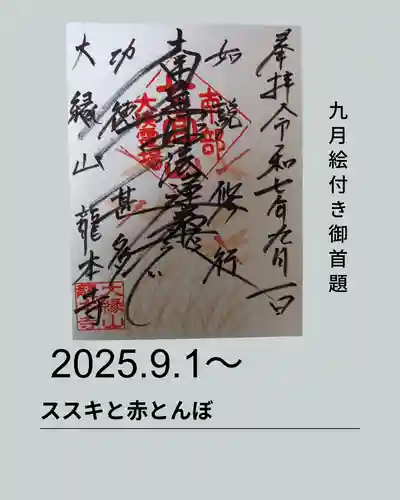 奉拝 令和七年九月一日
如説修行
南無妙法蓮華経
功徳甚多
大縁山 龍本寺
九月絵付き御首題
2025.9.1〜
ススキと赤とんぼ